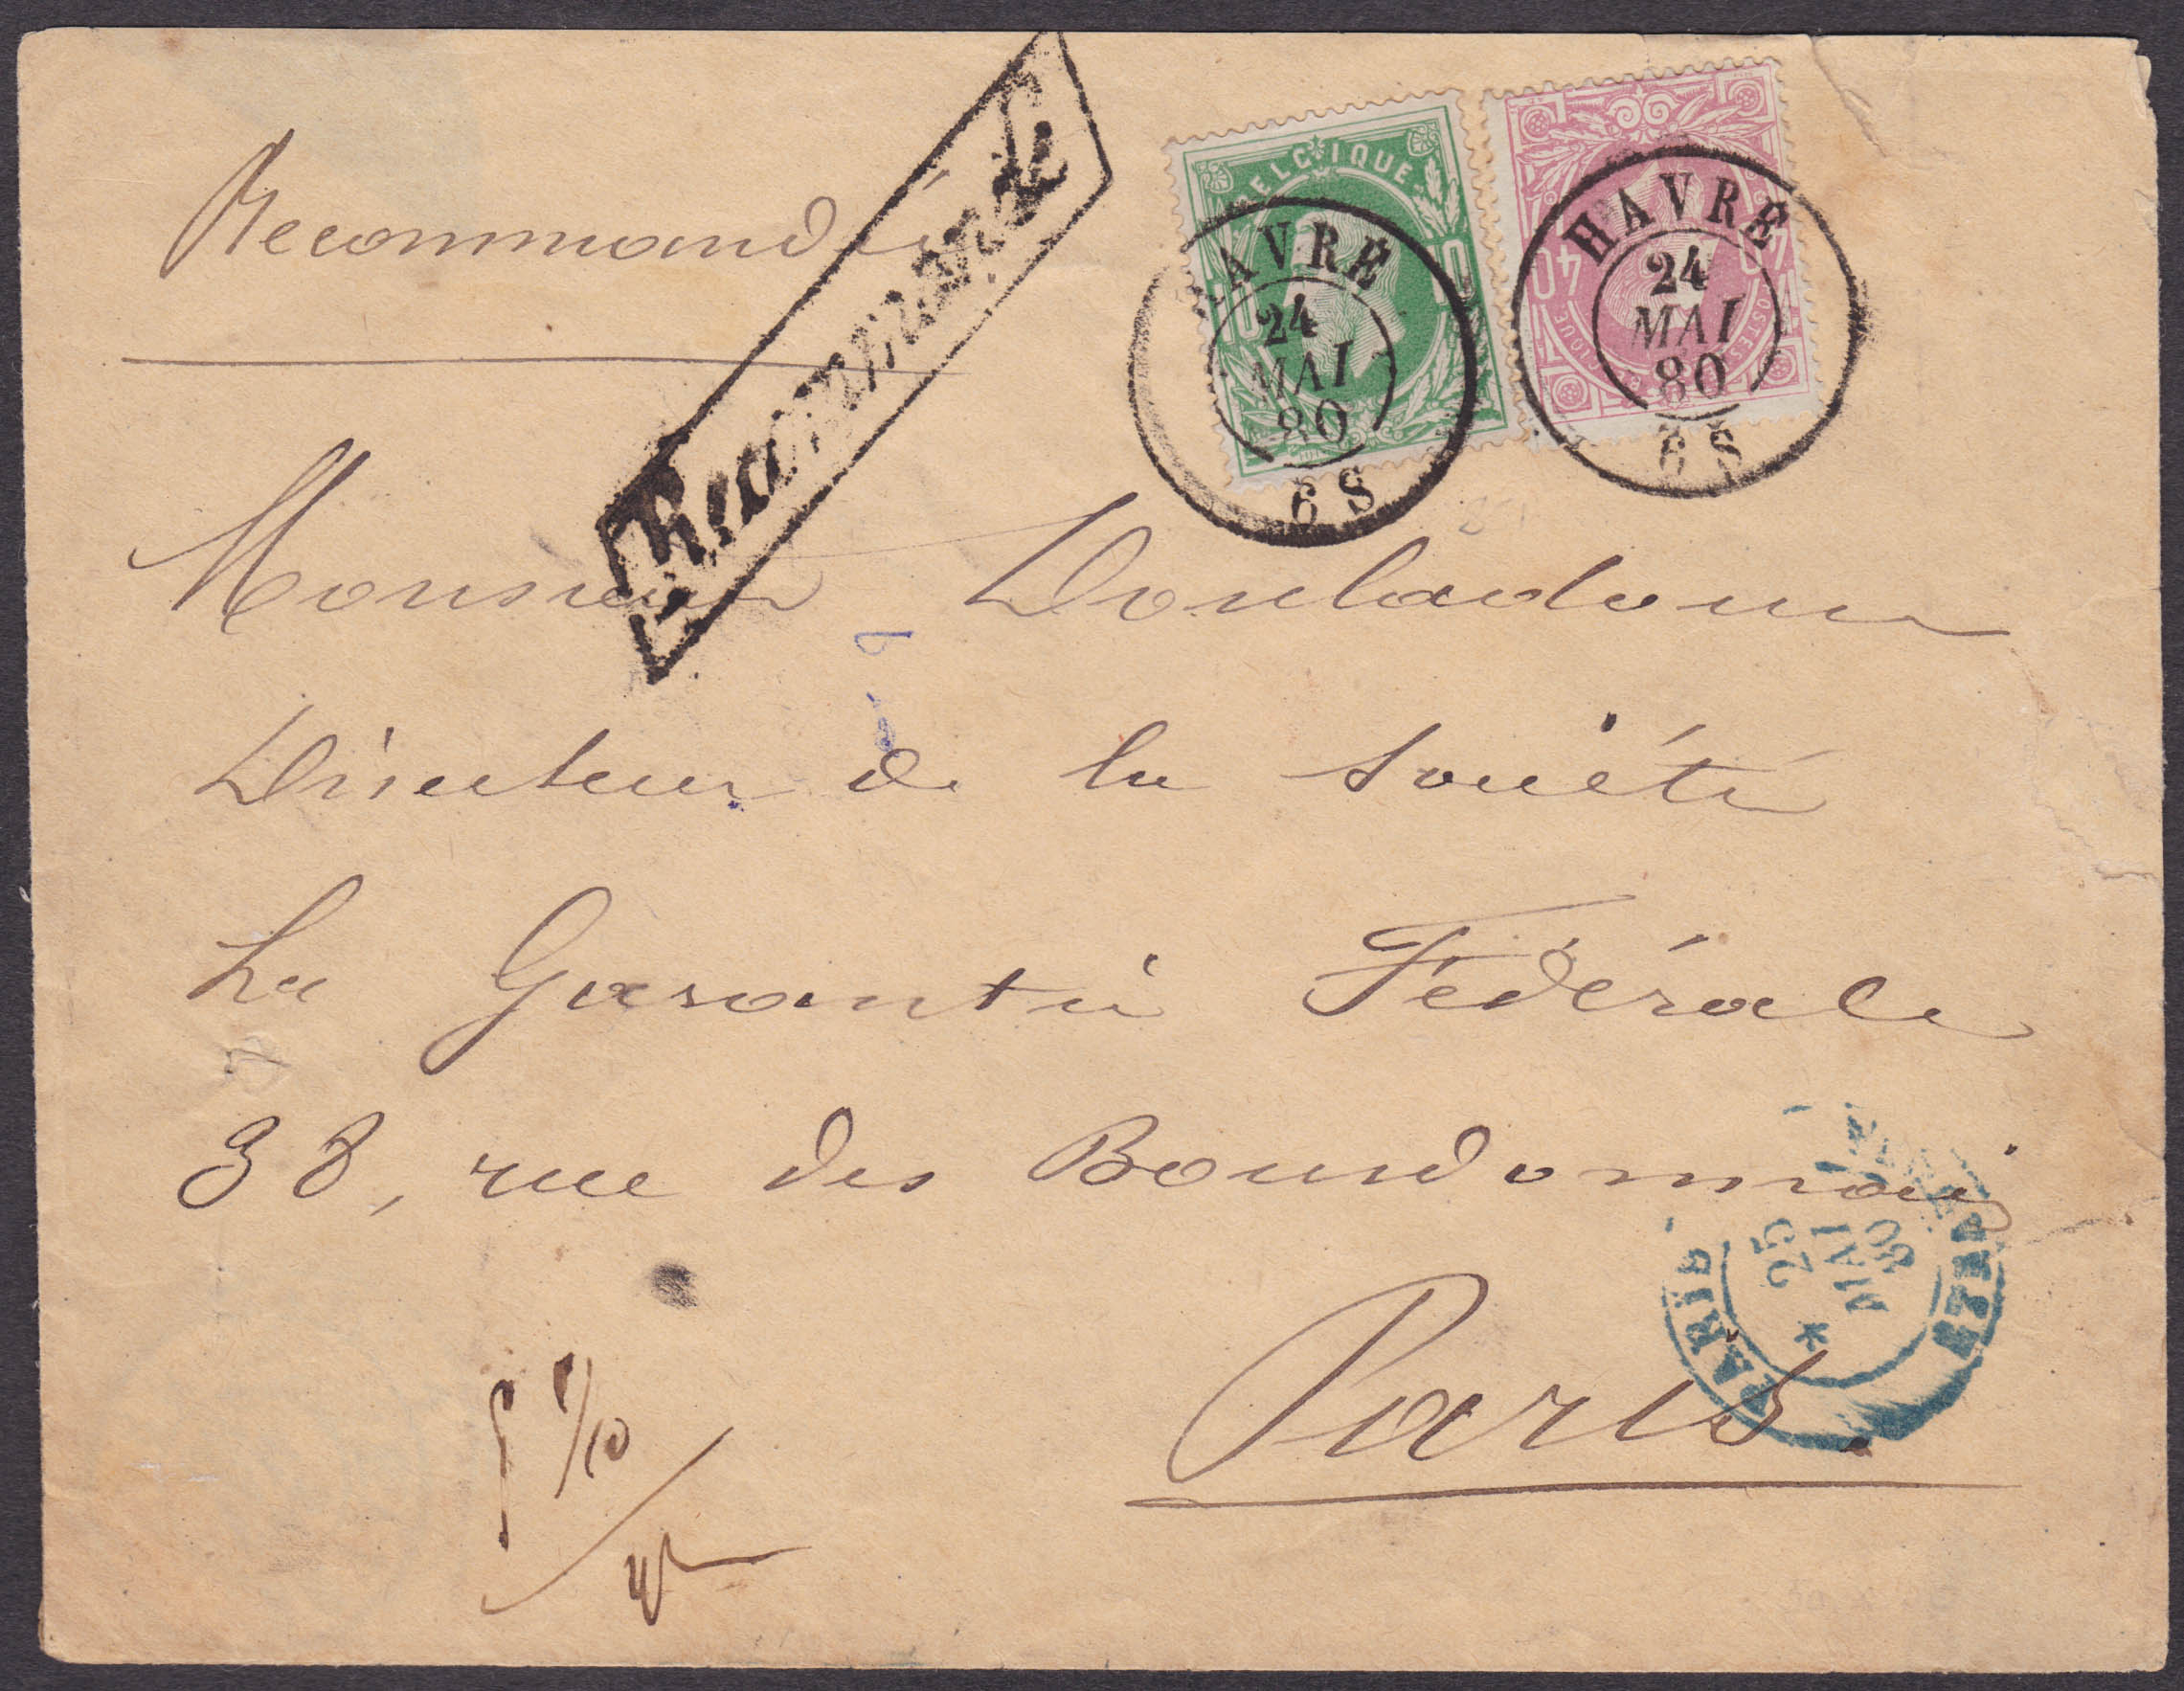 Recommandé
Recommandé
BELGIQUE
10
HAVRÉ
24
MAI
80
6 S
40
HAVRÉ
24
MAI
80
6 S
Monsieur
Directeur de la Société
La Garantie Fédérale
38, rue des Bourdonnais
Paris.
PARIS
ETRANGER
25
MAI
80